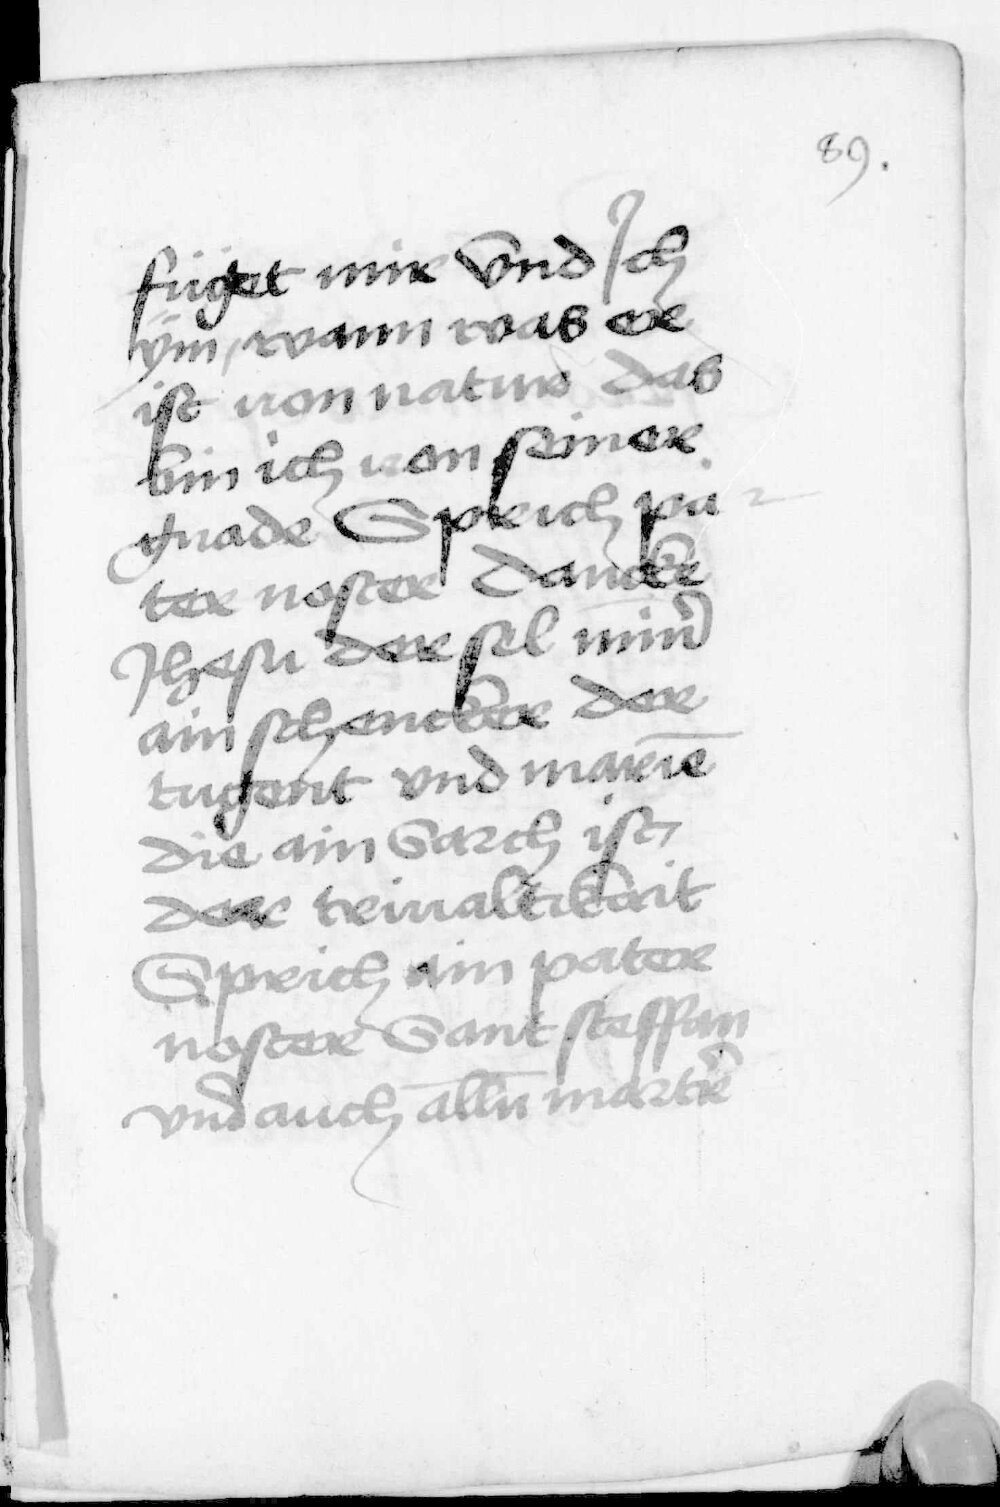 89.
füget mir Vnd Ich
ÿm, wann was er
ist von natur das
bin ich von seiner
gnade Sprich pa
ter noster Dancke
Jhesu der sel min̄
ain schencker der
tugent vnd marie
die ain Sarch ist
der triualtikait
Sprich ain pater
noster Sant steffan
vnd auch alln̄ martrͤ